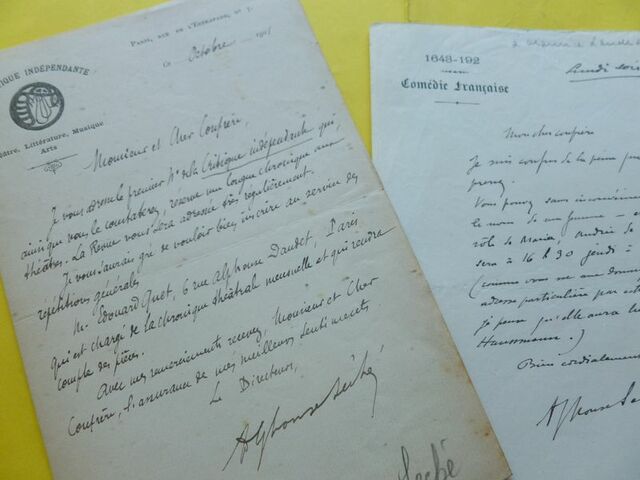 PARIS, RUE DE L'ESTRAPADE, Nº 7.
Ce Octobre 1905
TIQUE INDÉPENDANTE
éâtre, Littérature, Musique
Arts
Monsieur et Cher Confrère,
Je vous adresse le premier Nº de la Critique indépendante qui,
ainsi que vous le constaterez, réserve une longue chronique aux
théâtres. La Revue vous sera adressée très régulièrement.
Je vous saurais gré de vouloir bien inscrire au service des
répétitions générales
Mr Edouard Quet, 6 rue Alphonse Daudet, Paris
qui est chargé de la chronique théâtrale mensuelle et qui rendra
compte des pièces.
Avec mes remerciements recevez, Monsieur et Cher
Confrère, l'assurance de mes meilleurs sentiments.
Le Directeur,
Alphonse Séché
Séché
1648-192
Comédie Française
Lundi soir
Mon cher confrère
Je suis confus de la peine
prenez
Vous pouvez sans
le nom de
rôle de Maria,
sera à 16 h 30 jeudi -
(comme vous ne me
adresse particulière par
je pense qu'elle aura
Haussmann.)
Bien cordialement
Alphonse Sé